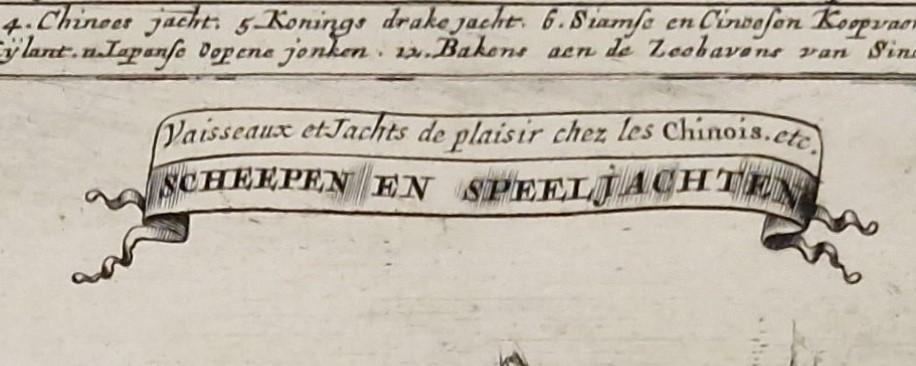 4. Chinees jacht. 5. Konings drake jacht. 6. Siamse en Cineesen Koopvaer
ÿlant. 11. Iapanse oopene jonken. 12. Bakens aen de Zeehavens van Sin
Vaisseaux et Jachts de plaisir chez les Chinois. etc.
SCHEEPEN EN SPEELJACHTEN